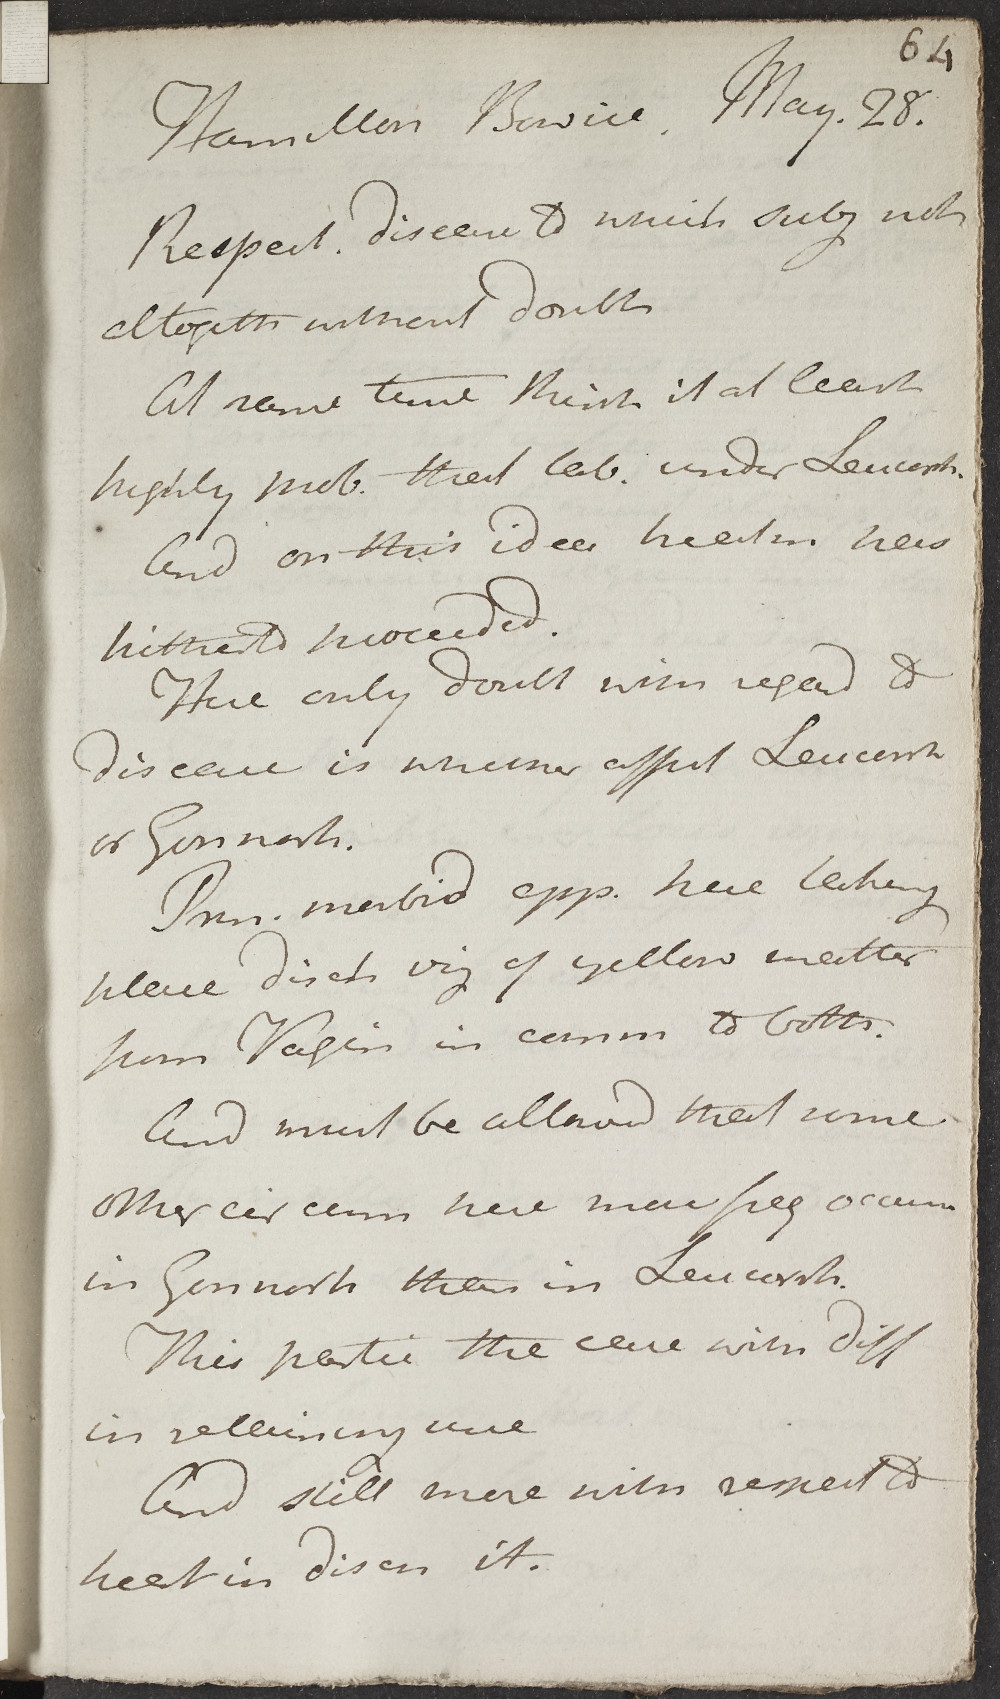 64
Hamilton Bowie. May. 28.
Respect. disease to which subj not
altogeth without doubt
At same time think it at least
highly prob. that lab. under Leucorrh.
And on this idea treatm has
hitherto proceeded.
The only doubt with regard to
disease is whether affect Leucorrh
or Gonnorh.
Prin. morbid app. here taking
place disch viz of yellow matter
from Vagin in comm to both.
And must be allowed that some
other circum here more freq occurr
in Gonnorh than in Leucorrh.
This partic the case with diff
in retaining urine
And still more with respect to
heat in disch it.